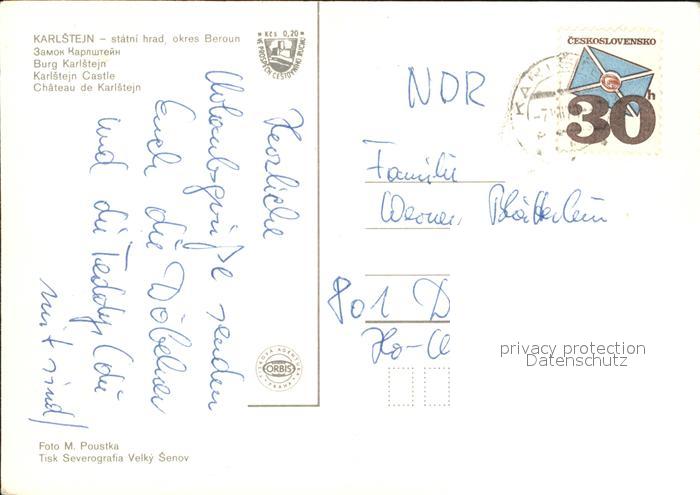 KARLŠTEJN – státní hrad, okres Beroun
Замок Карлштейн
Burg Karlštejn
Karlštejn Castle
Château de Karlštejn
Kčs 0,20
VE PROSPĚCH CESTOVNÍHO RUCHU
ČESKOSLOVENSKO
30h
NDR
Herzliche
Urlaubsgrüße senden
Euch die Döbelner
und die Teddys (die
mit sind)
Familie
Werner
801 D
ORBIS
PRAHA
privacy protection
Datenschutz
Foto M. Poustka
Tisk Severografia Velký Šenov